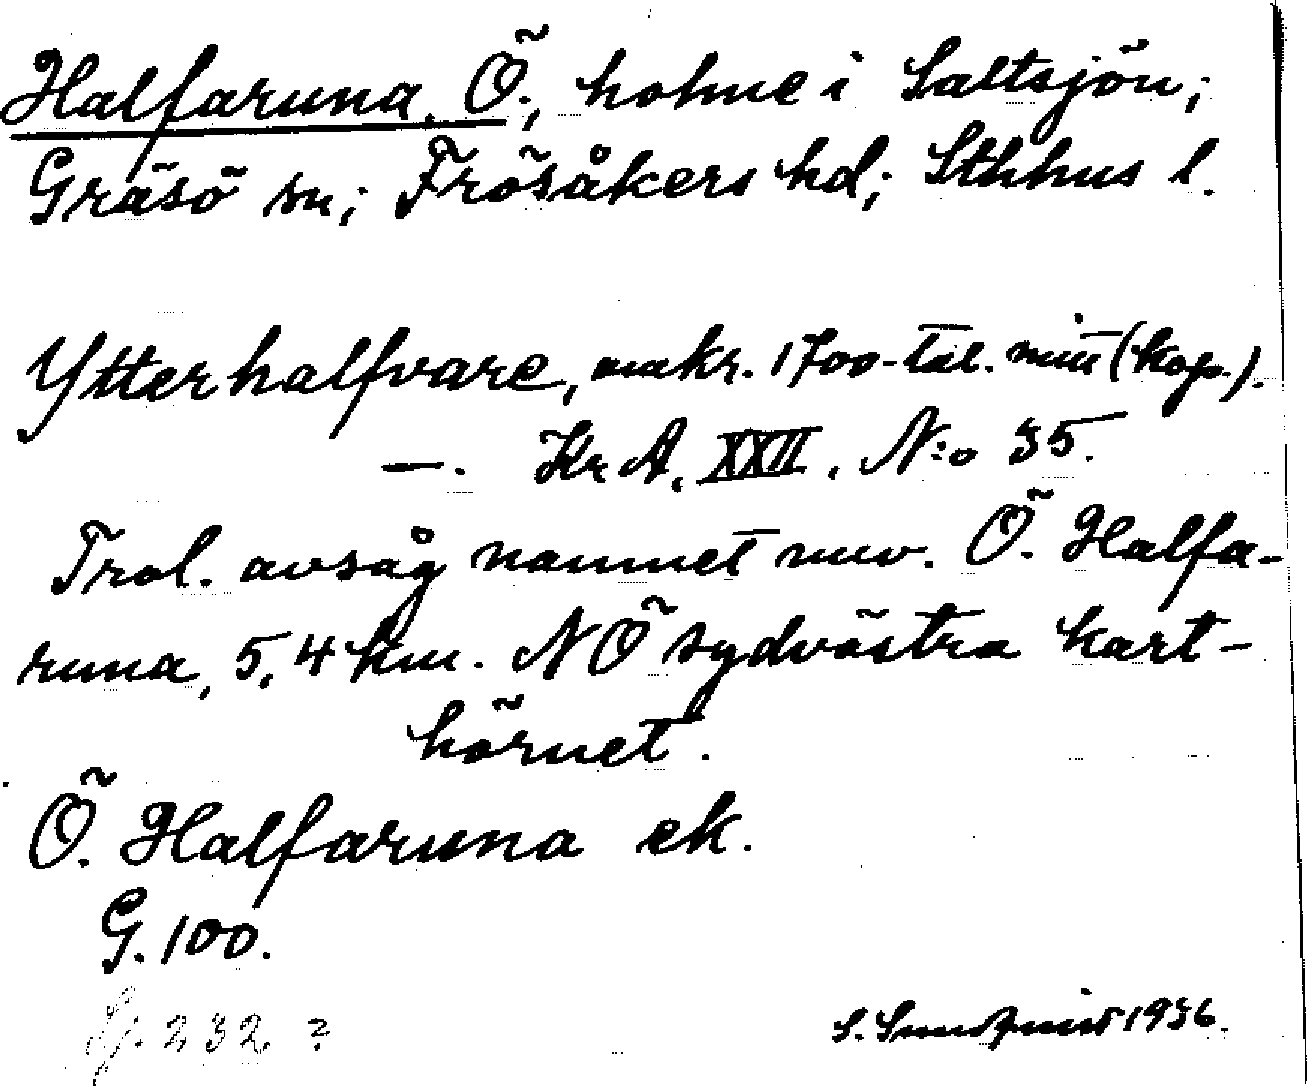 Halfaruna, Ö., holme i Saltsjön;
Gräsö sn; Frösåkers hd; Sthhus l.
Ytterhalfvare, omkr. 1700-tal. mitt (kop.).
—. KrA, XXII, N:o 35.
Trol. avsåg namnet nuv. Ö. Halfa-
runa, 5,4 km. NÖ sydvästra kart-
hörnet.
Ö. Halfaruna ek.
G. 100.
G. 232 ?
S. Sundquist 1936.